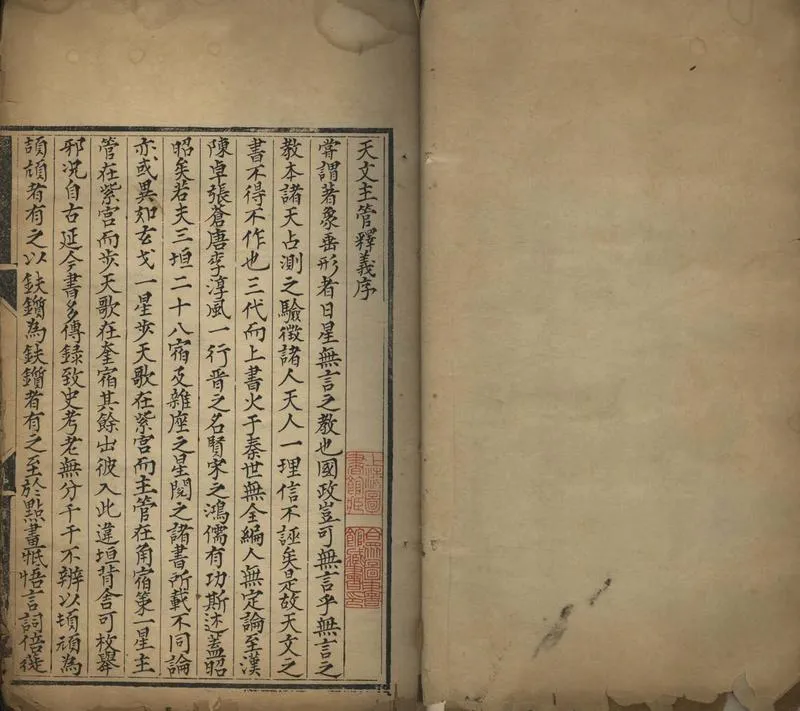 天文主管釋義序
嘗謂著象垂形者日星無言之教也國政豈可無言乎無言之
教本諸天占測之驗徵諸人天人一理信不誣矣是故天文之
書不得不作也三代而上書火于秦世無全編人無定論至漢
陳卓張蒼唐李淳風一行晉之名賢宋之鴻儒有功斯述蓋昭
昭矣若夫三垣二十八宿及雜座之星閱之諸書所載不同論
亦或異如玄戈一星步天歌在紫宮而主管在角宿第一星主
管在紫宮而步天歌在奎宿其餘出彼入此違垣背舍可枚舉
邪况自古延今書多傳錄致史考老無分千干不辨以頃頏為
頡頏者有之以鈇鑕為鈇鑕者有之至於點畫牴牾言詞倍蓰
上海圖書館藏